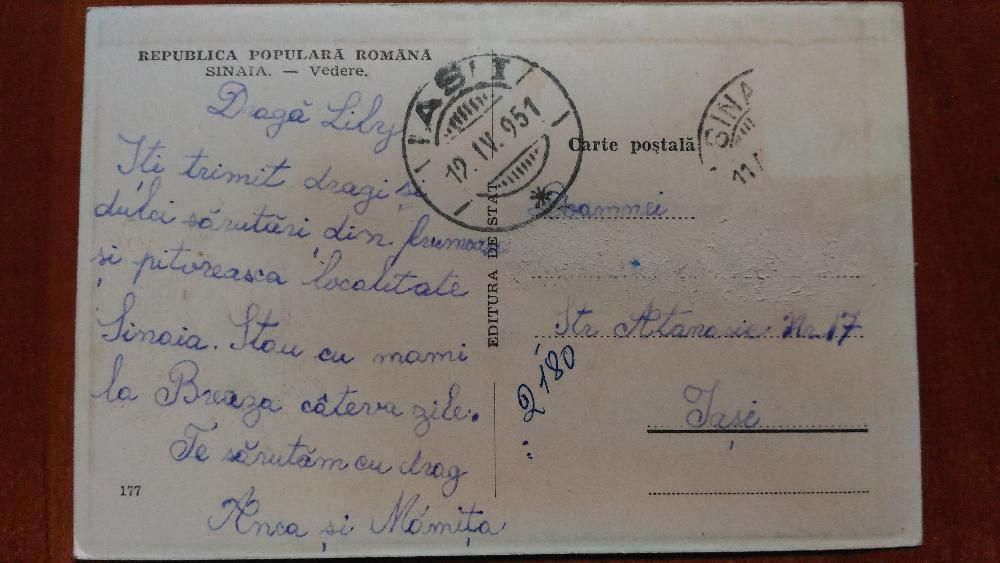 REPUBLICA POPULARĂ ROMÂNĂ
SINAIA. — Vedere.
Dragă Lily
Iți trimit dragi și
dulci sărutări din frumoasa
și pitoreasca localitate
Sinaia. Stau cu mami
la Breaza câteva zile.
Te sărutăm cu drag
Anca și Mămița
177
EDITURA DE STAT
IAȘI
12.IV.951
Carte poștală
SINA
11
Doamnei
Str. Atanasie Nr 17
Iași
2180